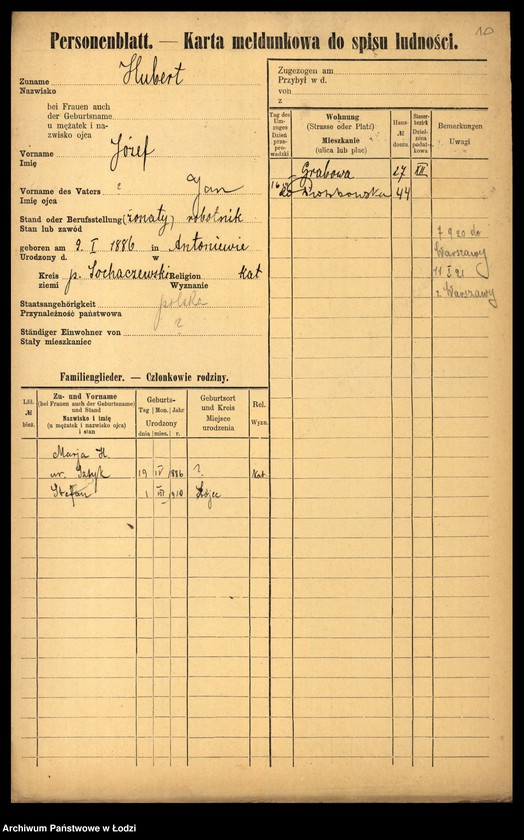 10
Personenblatt. — Karta meldunkowa do spisu ludności.
Zuname Hubert
Nazwisko
bei Frauen auch
der Geburtsname
u mężatek i na-
zwisko ojca
Vorname Józef
Imię
Vorname des Vaters ? Jan
Imię ojca
Stand oder Berufsstellung (żonaty) robotnik
Stan lub zawód
geboren am 9. I 1886 in Antoniewie
Urodzony d. w
Kreis p. Sochaczewski Religion Kat
ziemi Wyznanie
Staatsangehörigkeit polska
Przynależność państwowa
Ständiger Einwohner von ?
Stały mieszkaniec
Zugezogen am
Przybył w d.
von
z
Tag des Um-
zuges
Dzień
przepro-
wadzki
Wohnung
(Strasse oder Platz)
Mieszkanie
(ulica lub plac)
Haus-
№
domu.
Steuer-
bezirk
Dziel-
nica
podat-
kowa
Bemerkungen
Uwagi
Grabowa 27 XII
Piotrkowska 44
7 9 20 do
Warszawy
11 I 21
z Warszawy
Familienglieder. — Członkowie rodziny.
Lfd.
№
bież.
Zu- und Vorname
(bei Frauen auch der Geburtsname)
und Stand
Nazwisko i imię
(u mężatek i nazwisko ojca)
i stan
Geburts-
Tag Mon. Jahr
Urodzony
dnia mies. r.
Geburtsort
und Kreis
Miejsce
urodzenia
Rel.
Wyzn.
Marja H.
ur. 19 IV 1886 ? Kat
Stefan 1 1910
Archiwum Państwowe w Łodzi